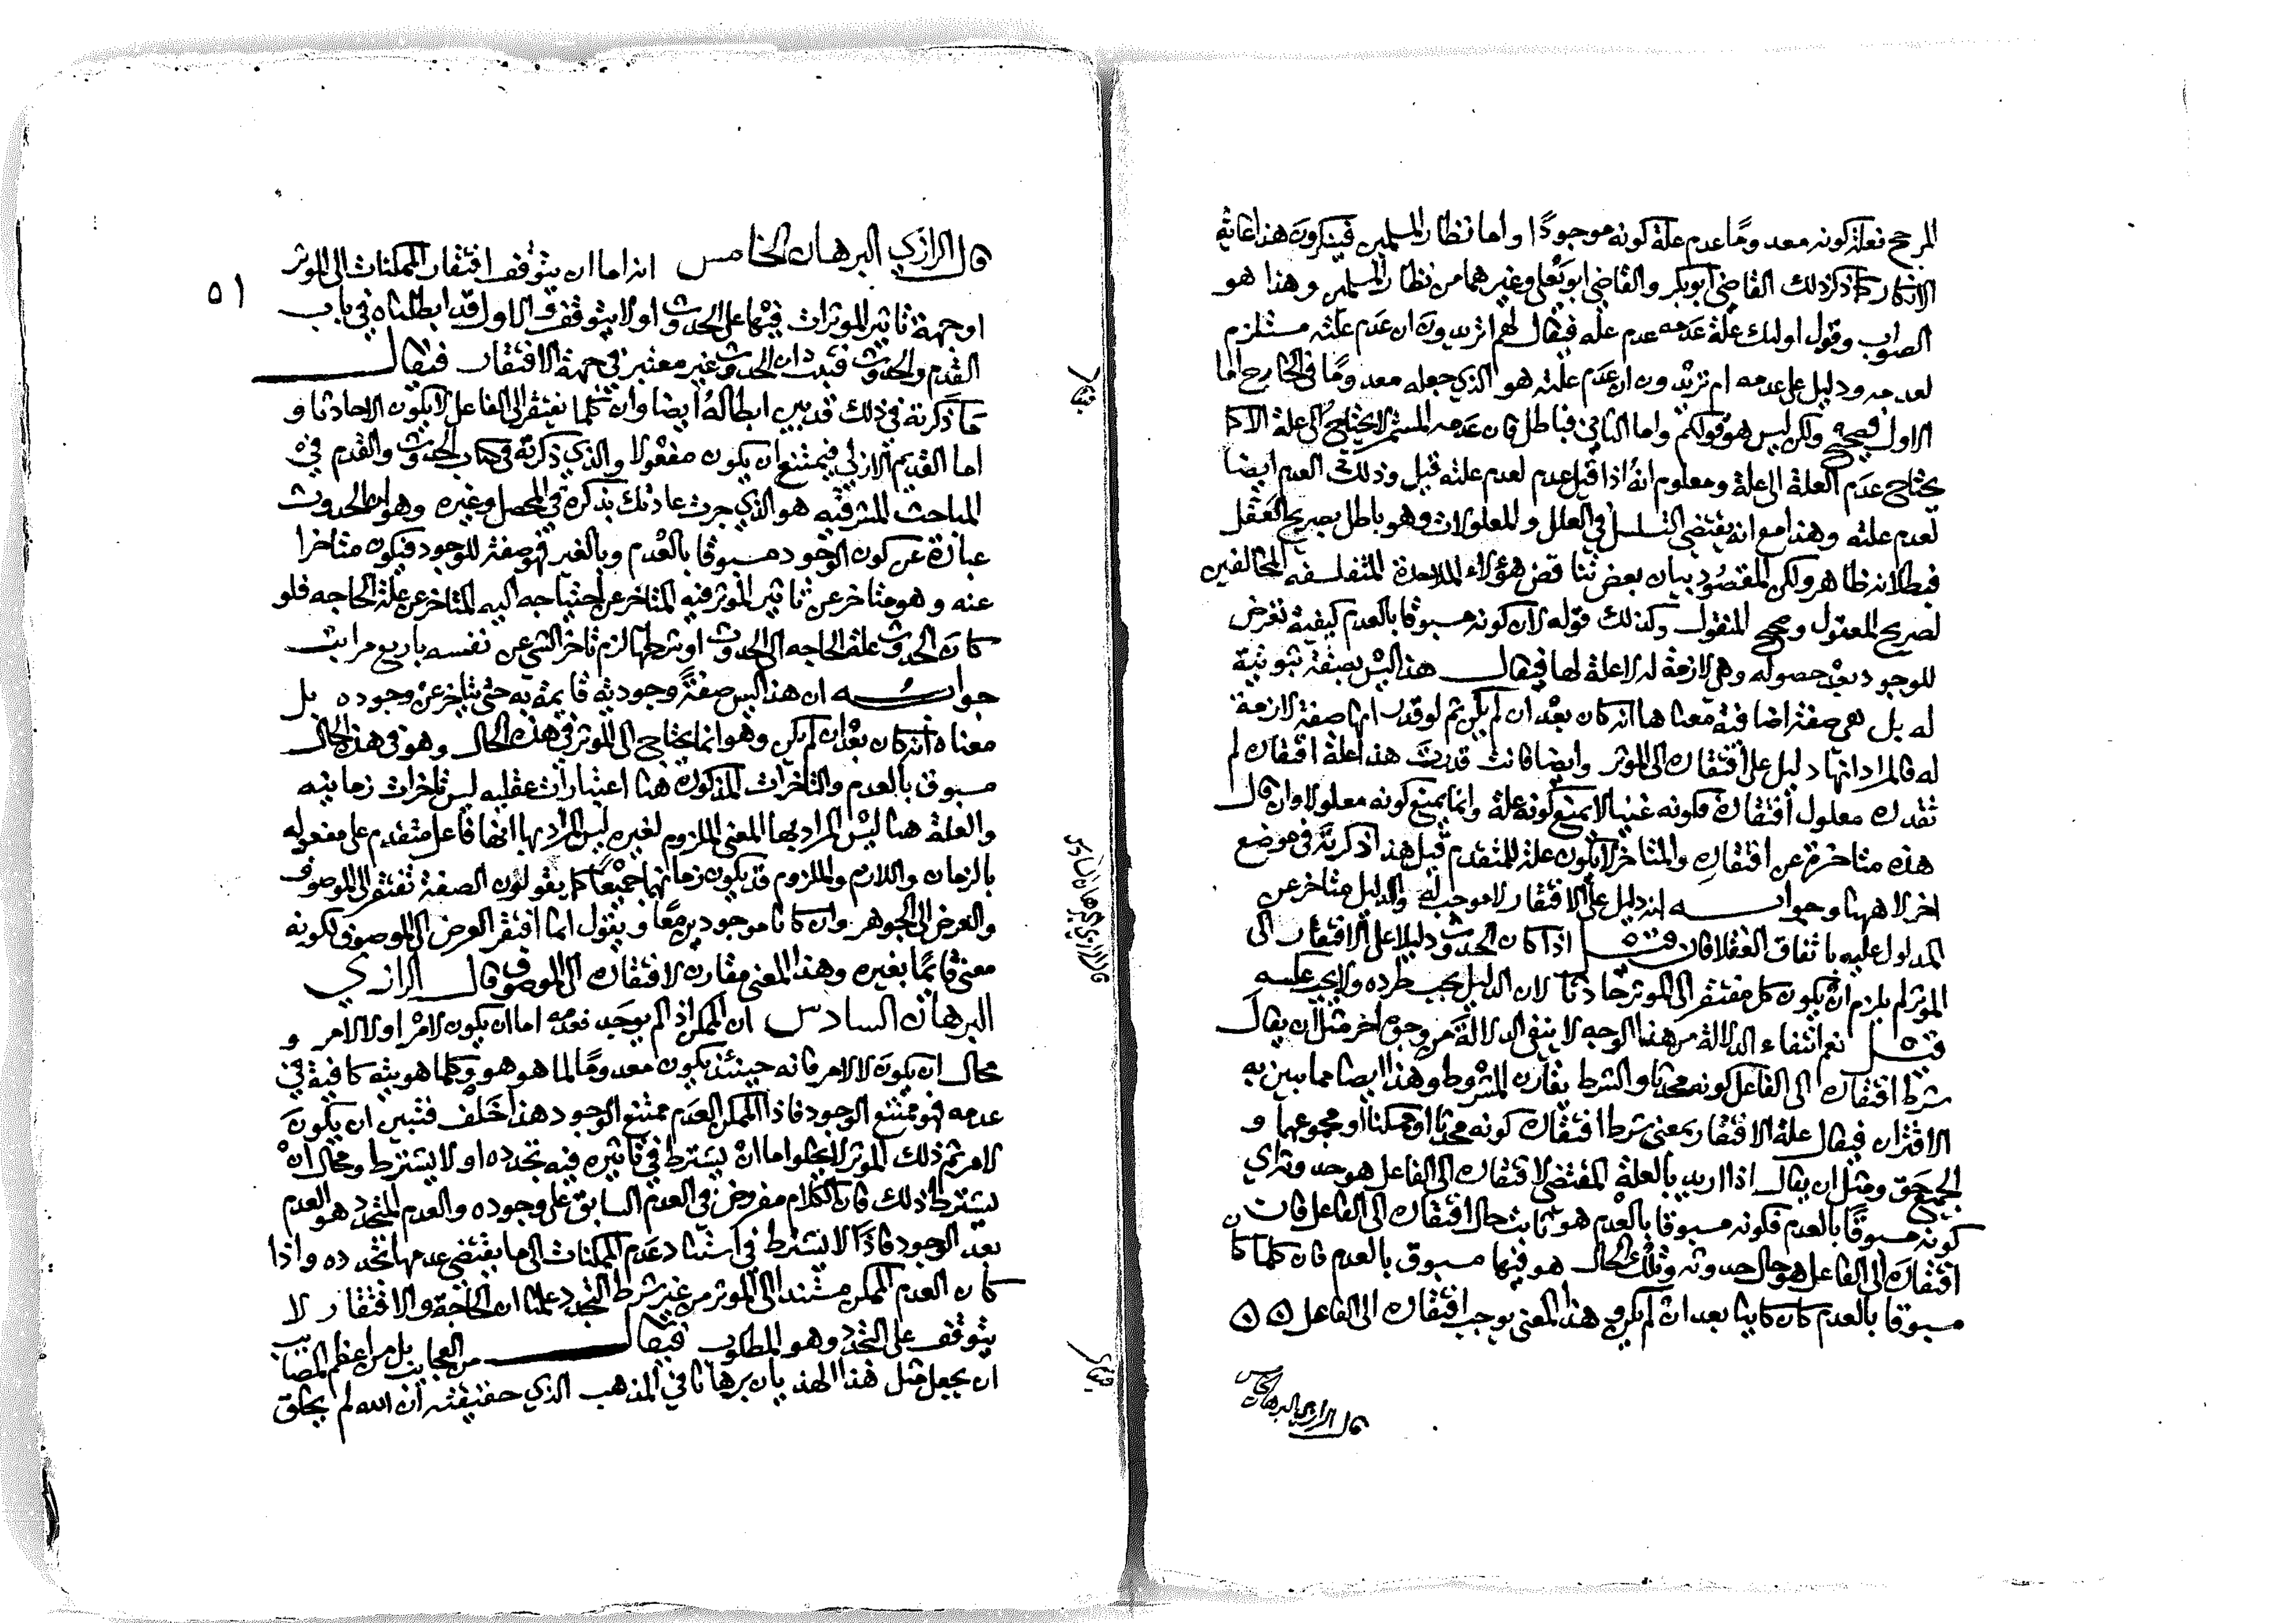 المرجح فعلة كونه معدوما عدم علة كونه موجودا واما نظار المسلمين فينكرون هذا غاية
الانكار كما ذكر ذلك القاضي ابو بكر والقاضي ابو يعلى وغيرهما من نظار المسلمين وهذا هو
الصواب وقول اولئك علة عدمه عدم علته فيقال لهم اتريدون ان عدم علته مستلزم
لعدمه ودليل على عدمه ام تريدون ان عدم علته هو الذي جعله معدوما في الخارج اما
الاول فصحيح ولكن ليس هو قولكم واما الثاني فباطل فان عدمه المستمر لا يحتاج الى علة الا كما
يحتاج عدم العلة الى علة ومعلوم انه اذا قيل عدم لعدم علته قيل وذلك العدم ايضا
لعدم علته وهذا مع انه يقتضي التسلسل في العلل والمعلولات وهو باطل بصريح العقل
فبطلانه ظاهر ولكن المقصود بيان بعض تناقض هؤلاء الملاحدة المتفلسفه المخالفين
لصريح المعقول وصحيح المنقول وكذلك قوله لان كونه مسبوقا بالعدم كيفية تعرض
للوجود بعد حصوله وهي لازمة له لا علة لها فيقال هذا ليس بصفة ثبوتية
له بل هي صفة اضافية معناها انه كان بعد ان لم يكن ثم لو قدر انها صفة لازمة
له فالمراد انها دليل على افتقاره الى المؤثر وايضا فانت قدرت هذا علة افتقاره لم
تقدره معلول افتقاره فكونه غنيا لا يمنع كونه علة وانما يمنع كونه معلولا وان قال
هذه متاخرة عن افتقاره والمتاخر لا يكون علة للمتقدم قيل هذا ذكرته في موضع
اخر لا ههنا وجوابه انه دليل على الافتقار لا موجب له والدليل متاخر عن
المدلول عليه باتفاق العقلا فان قيل اذا كان الحدوث دليلا على الافتقار الى
المؤثر لم يلزم ان يكون كل مفتقر الى المؤثر حادثا لان الدليل يجب طرده ولا يجب عكسه
قيل نعم انتفاء الدلالة من هذا الوجه لا ينفي الدلالة من وجوه اخر مثل ان يقال
شرط افتقاره الى الفاعل كونه محدثا والشرط يقارن المشروط وهذا ايضا مما يبين به
الاقتران فيقال علة الافتقار بمعنى شرط افتقاره كونه محدثا او ممكنا او مجموعهما و
الجميع حق ومثل ان يقال اذا اريد بالعلة المقتضي لافتقاره الى الفاعل هو حدوثه اي
كونه مسبوقا بالعدم فكونه مسبوقا بالعدم هو ثابت حال افتقاره الى الفاعل فان
افتقاره الى الفاعل هو حال حدوثه وتلك الحال هو فيها مسبوق بالعدم فان كلما كان
مسبوقا بالعدم كان كائنا بعد ان لم يكن وهذا المعنى يوجب افتقاره الى الفاعل ه ه
قال الرازي البرهان الخامس
٥١
قال الرازي البرهان الخامس انه اما ان يتوقف افتقار الممكنات الى المؤثر
او جهة تاثير المؤثرات فيها على الحدوث او لا يتوقف والاول قد ابطلناه في باب
القدم والحدوث فثبت ان الحدوث غير معتبر في جهة الافتقار فيقال
ما ذكرته في ذلك قد بين ابطاله ايضا وان كلما يفتقر الى الفاعل لا يكون الا حادثا و
اما القديم الازلي فيمتنع ان يكون مفعولا والذي ذكرته في كتاب الحدوث والقدم في
المباحث المشرقيه هو الذي جرت عادتك بذكره في المحصل وغيره وهو ان الحدوث
عبارة عن كون الوجود مسبوقا بالعدم وبالغير فهو صفة للوجود فيكون متاخرا
عنه وهو متاخر عن تاثير المؤثر فيه المتاخر عن احتياجه اليه المتاخر عن علة الحاجه فلو
كان الحدوث علة الحاجه الى الحدوث او شرطها لزم تاخر الشي عن نفسه باربع مراتب
جوابه ان هذا ليس صفة وجوديه قايمة به حتى يتاخر عن وجوده بل
معناه انه كان بعد ان لم يكن وهو انما يحتاج الى المؤثر في هذه الحال وهو في هذه الحال
مسبوق بالعدم والتاخرات المذكورة هنا اعتبارات عقليه ليس تاخرات زمانيه
والعلة هنا ليس المراد بها المعنى الملزوم لغيره ليس المراد بها انها فاعل متقدم على مفعوله
بالزمان واللازم والملزوم قد يكون زمانهما جميعا كما يقولون الصفة تفتقر الى الموصوف
والعرض الى الجوهر وان كانا موجودين معا ويقول انما افتقر العرض الى الموصوف لكونه
معنى قائما بغيره وهذا المعنى مقارن لافتقاره الى الموصوف قال الرازي
البرهان السادس ان الممكن اذا لم يوجد فعدمه اما ان يكون لامر او لا لامر و
محال ان يكون لا لامر فانه حينئذ يكون معدوما لما هو هو وكلما هويته كافية في
عدمه فهو ممتنع الوجود فاذا الممكن العدم ممتنع الوجود هذا خلف فتبين ان يكون
لامر ثم ذلك المؤثر لا يخلو اما ان يشترط في تاثيره فيه تجدده او لا يشترط ومحال ان
يشترط ذلك فان الكلام مفروض في العدم السابق على وجوده والعدم المتجدد هو العدم
بعد الوجود فاذا لا يشترط في استناد عدم الممكنات الى ما يقتضي عدمها تجدده واذا
كان العدم الممكن مستندا الى المؤثر من غير شرط التجدد علمنا ان الحاجة والافتقار لا
يتوقف على التجدد وهو المطلوب فيقال من العجايب بل من اعظم المصايب
ان يجعل مثل هذا الهذيان برهانا في المذهب الذي حقيقته ان الله لم يخلق
فيقال
قال الرازي البرهان السادس
فيقال